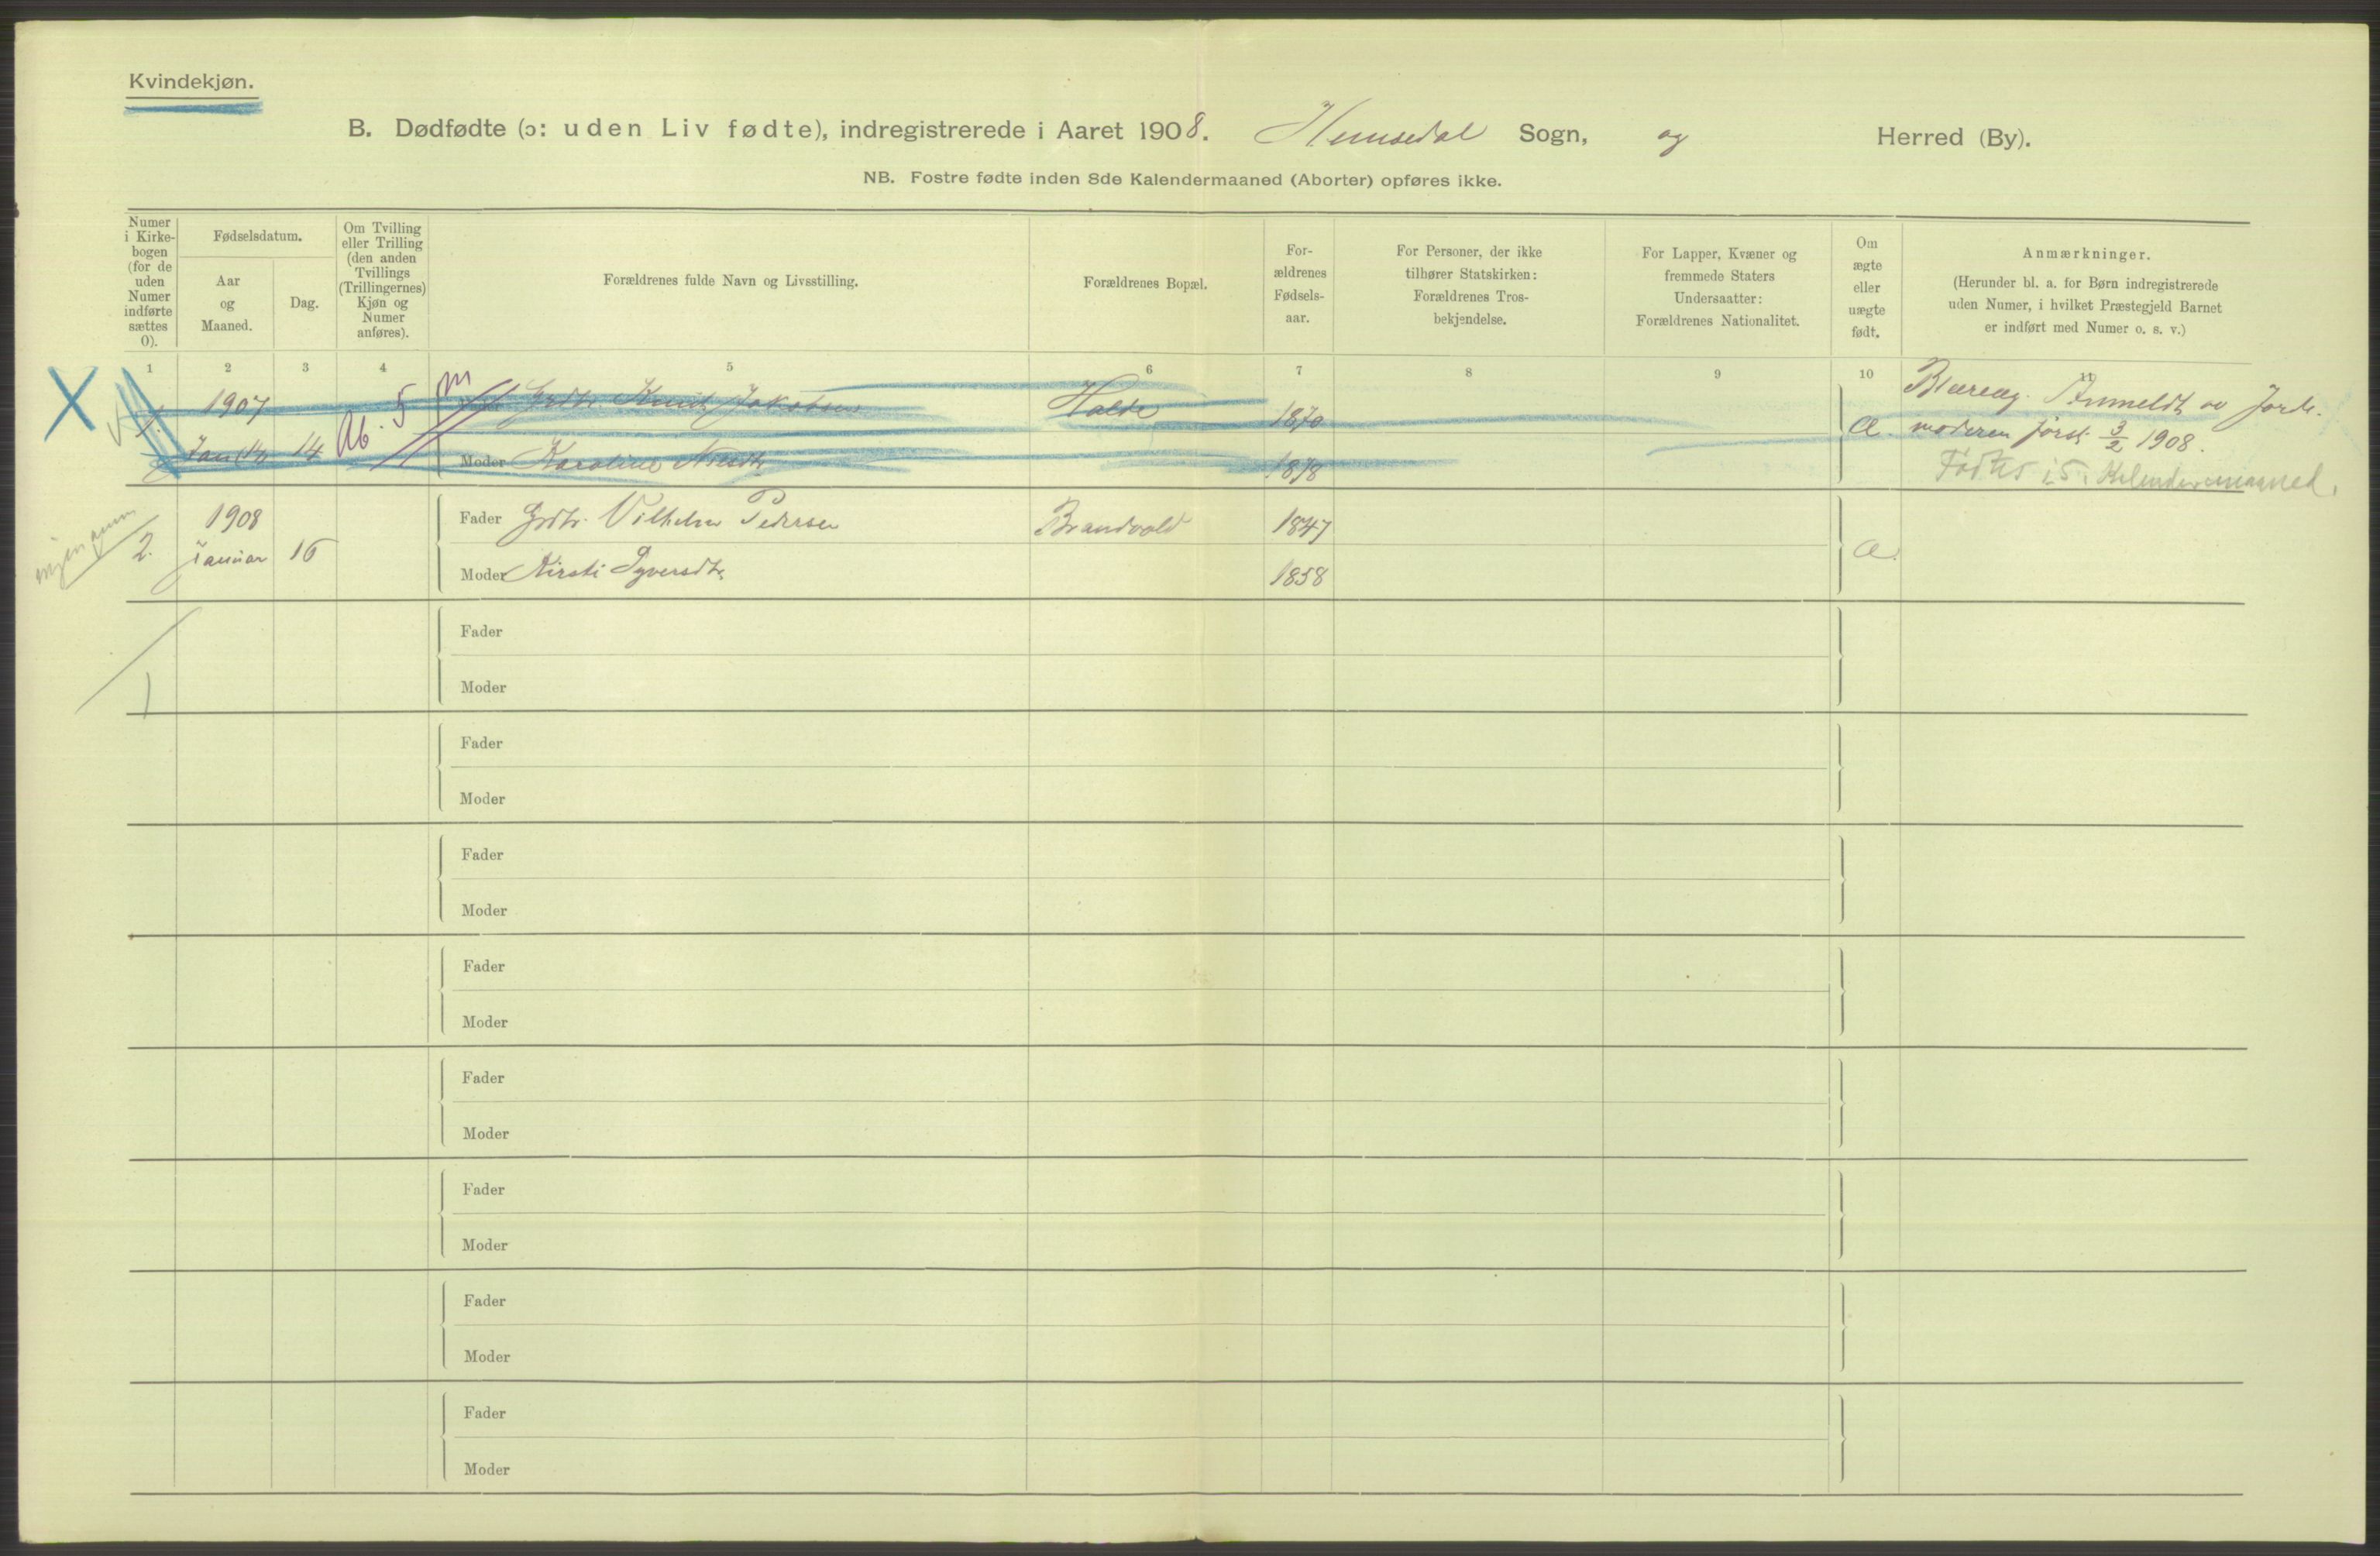 Kvindekjøn.
B. Dødfødte (ɔ: uden Liv fødte), indregistrerede i Aaret 1908. Hemsedal Sogn, og Herred (By).
NB. Fostre fødte inden 8de Kalendermaaned (Aborter) opføres ikke.
Numer i Kirke-bogen (for de uden Numer indførte sættes 0).
Fødselsdatum.
Aar og Maaned.
Dag.
Om Tvilling eller Trilling (den anden Tvillings (Trillingernes) Kjøn og Numer anføres).
Forældrenes fulde Navn og Livsstilling.
Forældrenes Bopæl.
For-ældrenes Fødsels-aar.
For Personer, der ikke tilhører Statskirken: Forældrenes Tros-bekjendelse.
For Lapper, Kvæner og fremmede Staters Undersaatter: Forældrenes Nationalitet.
Om ægte eller uægte født.
Anmærkninger.
(Herunder bl. a. for Børn indregistrerede uden Numer, i hvilket Præstegjeld Barnet er indført med Numer o. s. v.)
1 2 3 4 5 6 7 8 9 10 11
X
1. 1907 Ab. 5 m Grdbr. Knut Jakobsen Halde 1870
14 Moder Karoline 1878
Æ.
Anmeldt av Jord-
moderen først 3/2 1908.
Fødtes i 5. Kalendermaaned.
2. 1908 Januar 16
Fader Grdbr. Vilhelm Pedersen Brandvold 1847
Moder Kirsti Syversdtr. 1858
Æ.
Fader
Moder
1
Fader
Moder
Fader
Moder
Fader
Moder
Fader
Moder
Fader
Moder
Fader
Moder
Fader
Moder